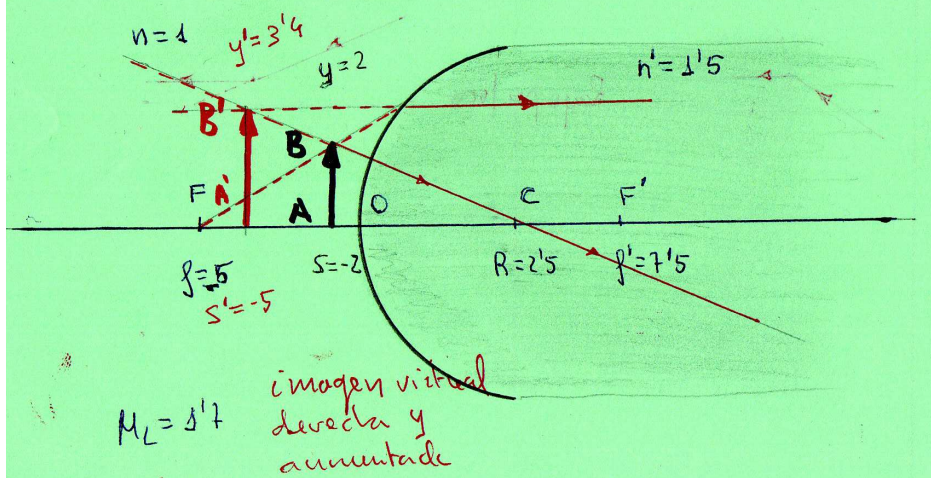 n=1
y'=3'4
y=2
n'=1'5
B'
B
F
A'
A
O
C
F'
f=-5
s=-2
R=2'5
f'=7'5
s'=-5
M_L=1'7
imagen virtual
derecha y
aumentada